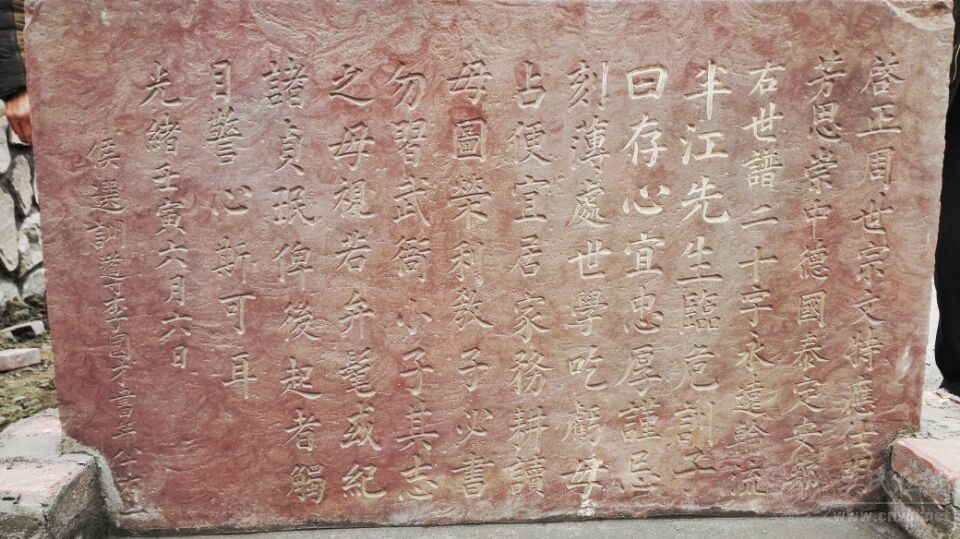 啓正周世宗文特應仕朝
芳思崇中德國泰定安邦
右世譜二十字永遠輪流
半江先生臨危訓子
曰存心宜忠厚謹忌
刻薄處世學吃虧毋
占便宜居家務耕讀
毋圖榮利教子必書
勿習武衙小子其志
之毋視若弁髦或紀
諸貞珉俾後起者觸
目警心斯可耳
光緒壬寅六月六日
侯選訓導李國才書年八十有一
www.cnyh.net